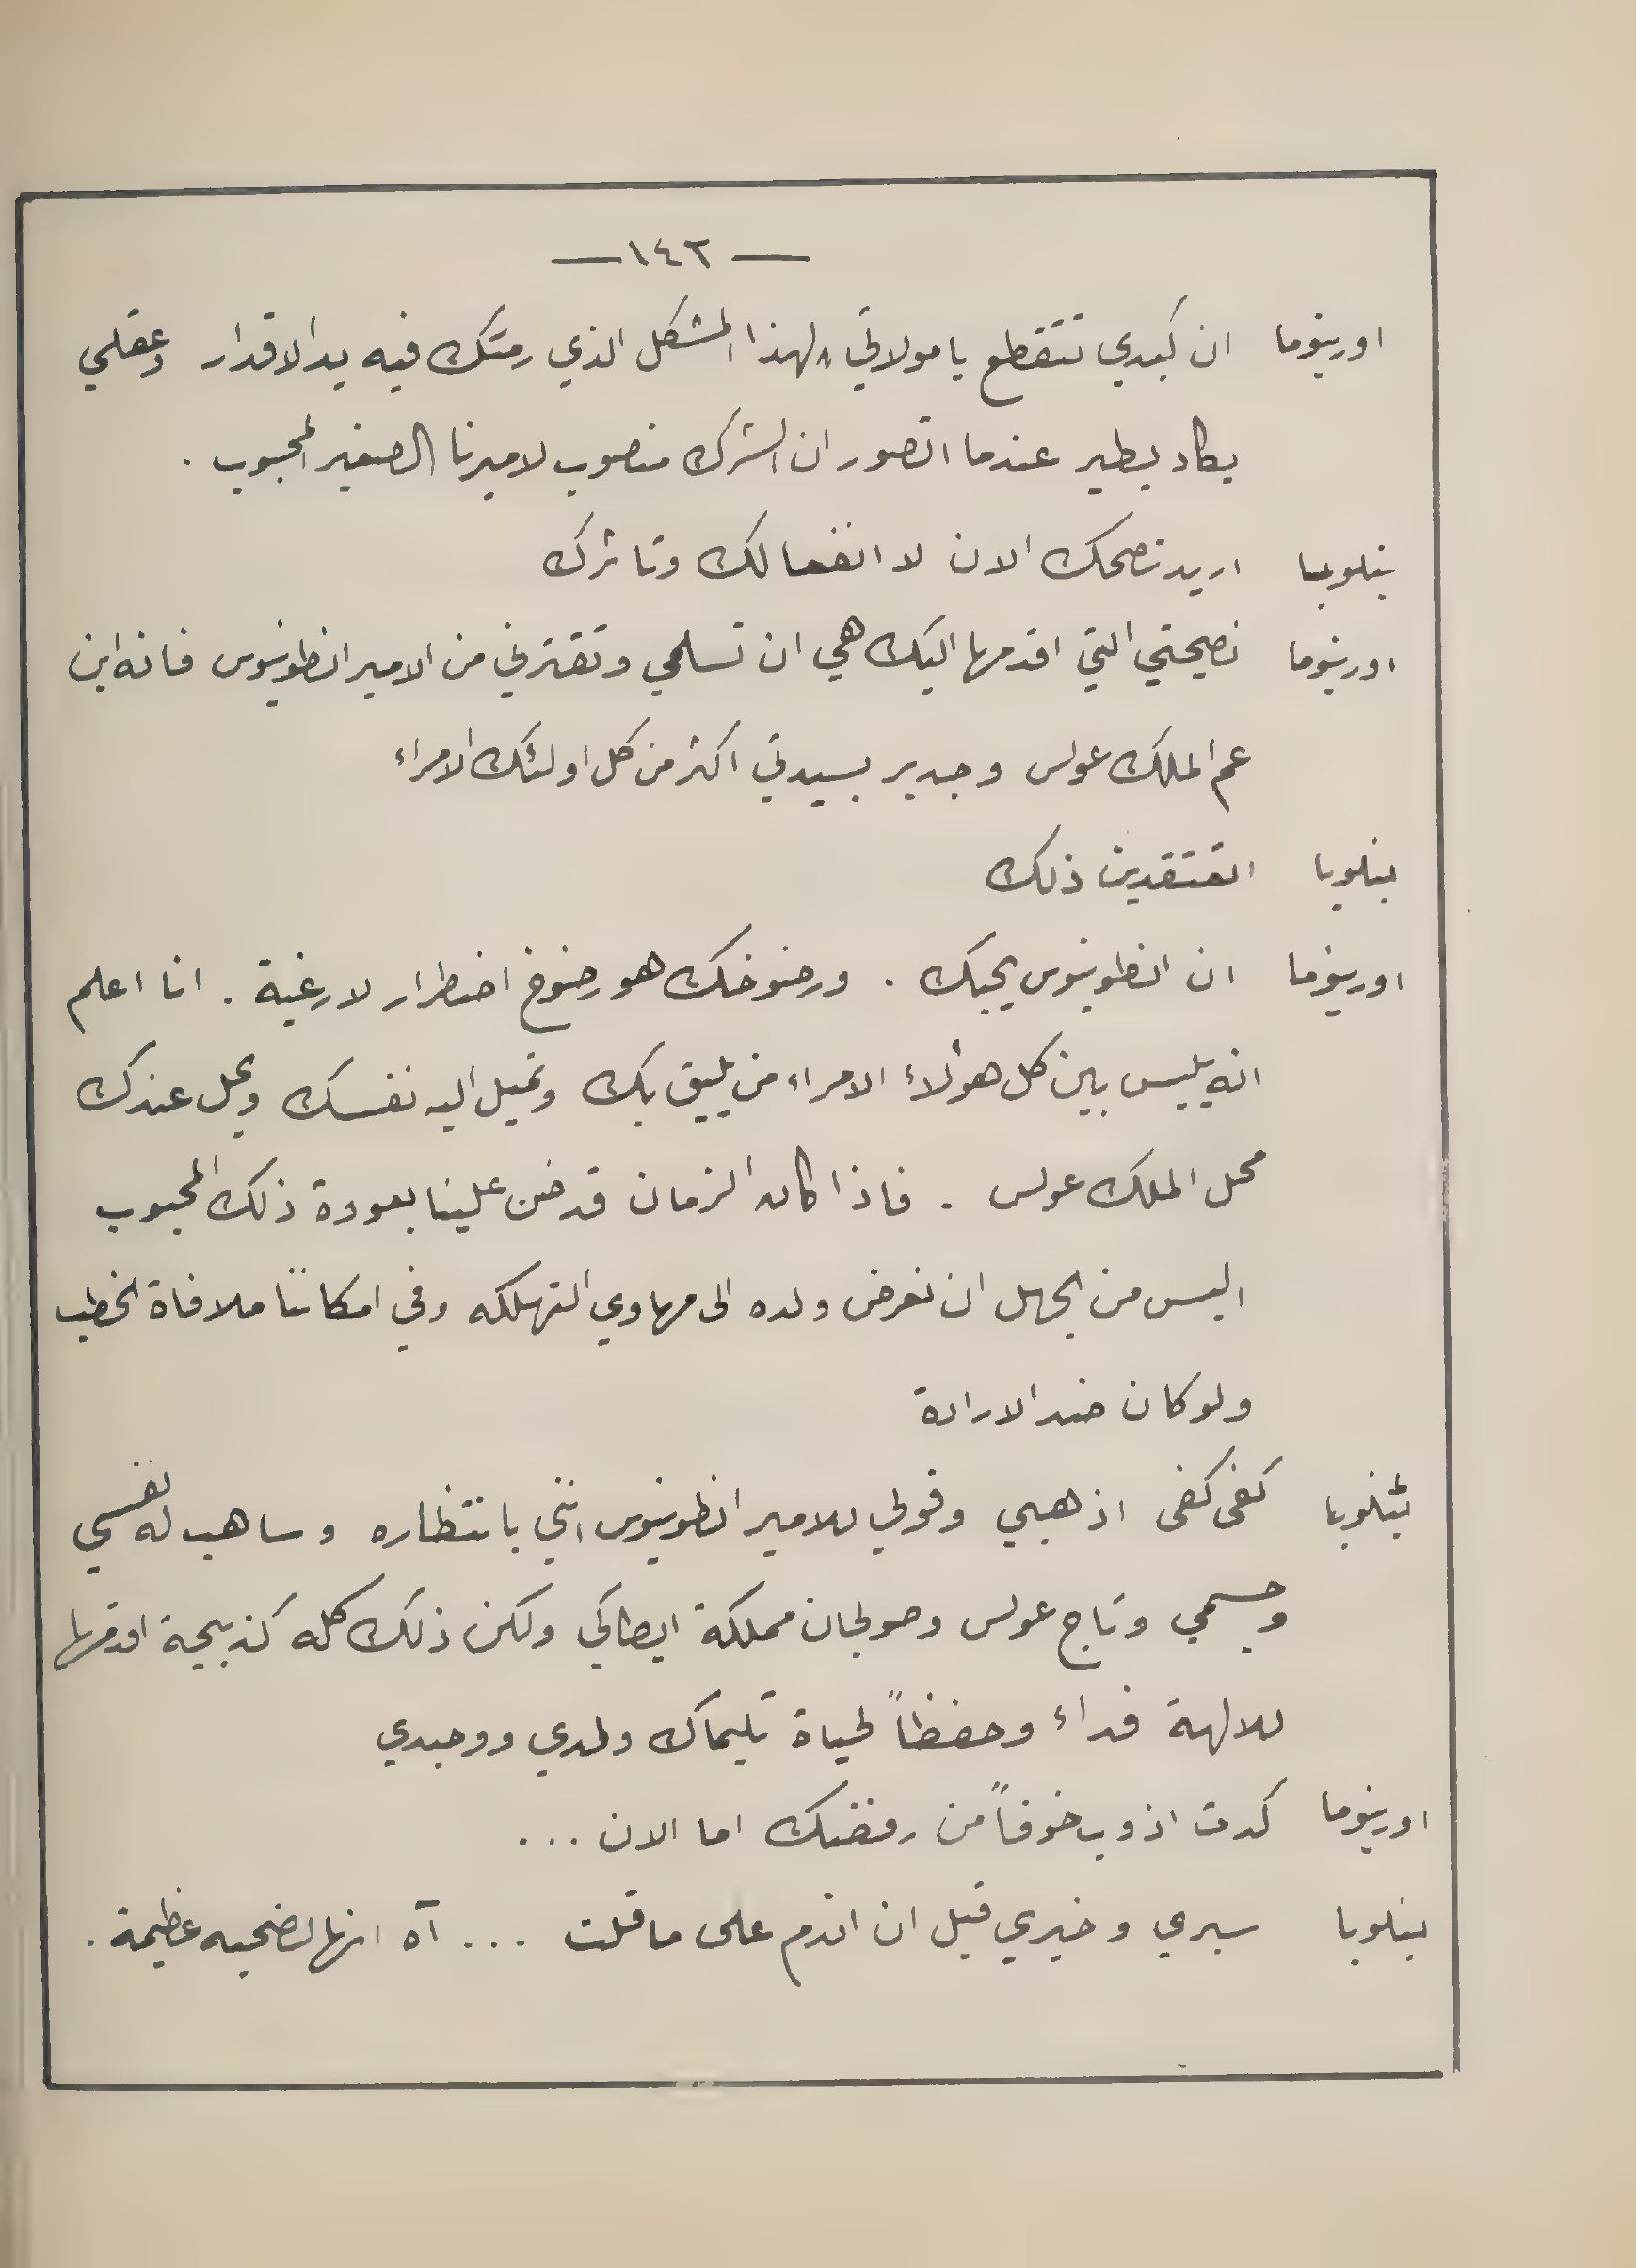 — ١٤٢ —
اورينوما ان كبدي تتقطع يا مولاتي لهذا المشكل الذي رمتك فيه يد الاقدار وعقلي
يكاد يطير عندما اتصور ان الشرك منصوب لاميرنا الصغير المحبوب .
بنلوبيا اريد نصحك الان لا انفعالك وتاثرك
اورينوما نصيحتي التي اقدمها اليك هي ان تسلمي وتقترني من الامير انطونيوس فانه ابن
عم الملك عولس وجدير بسيدتي اكثر من كل اولئك الامراء
بنلوبا اتعتقدين ذلك
اورينوما ان انطونيوس يحبك . ورضوخك هو رضوخ اضطرار لا رغبة . انا اعلم
انه ليس بين كل هؤلاء الامراء من يليق بك وتميل اليه نفسك ويحل عندك
محل الملك عولس . فاذا كان الزمان قد ضن علينا بعودة ذلك المحبوب
اليس من الجهل ان نعرض ولده الى مهاوي التهلكه وفي امكاننا ملافاة الخطب
ولو كان ضد الارادة
بنلوبا كفى كفى اذهبي وقولي للامير انطونيوس انني بانتظاره وساهب له نفسي
وجسمي وتاج عولس وصولجان مملكة ايطاكي ولكن ذلك كله كذبيحة اقدمها
للالهة فداء وحفظاً لحياة تليماك ولدي ووحيدي
اورينوما كدت اذوب خوفاً من رفضك اما الان ...
بنلوبا سيري وخبري قبل ان اندم على ما قلت ... آه انها لضحيه عظيمة .